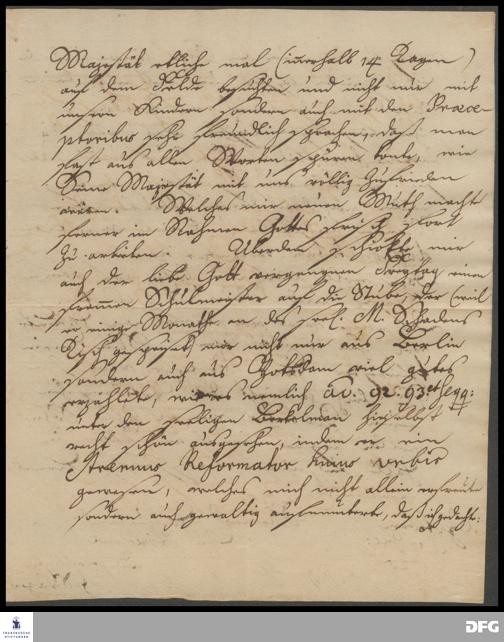 Majestät etliche mal (innerhalb 14 Tagen)
auf dem Felde besuchten und nicht nur mit
unsern Kindern sondern auch mit den Præce-
ptoribus sehr freundlich sprachen, daß man
fast aus allen Worten spüren konte, wie
Seine Majestät mit uns völlig zufrieden
wären. Welches mir neuen Muth macht
ferner im Nahmen Gottes frisch fort
zu arbeiten. Überdem schickte mir
auch der liebe Gott vergangenen Freytag einen
frommen Schulmeister auf die Stube, der (weil
er einige Monathe an des seel. M. Schadens
Tisch gespeiset) mir nicht nur aus Berlin
sondern auch aus Potsdam viel gutes
erzählete, wie es nemlich ao. 92. 93 et seqq:
unter dem seeligen hieselbst
recht schön ausgesehen, indem er ein
Strenuus Reformator huius urbis
gewesen, welches mich nicht allein erfreute
sondern auch gewaltig aufmunterte, daß ich gedachte:
FRANCKESCHE
STIFTUNGEN
DFG